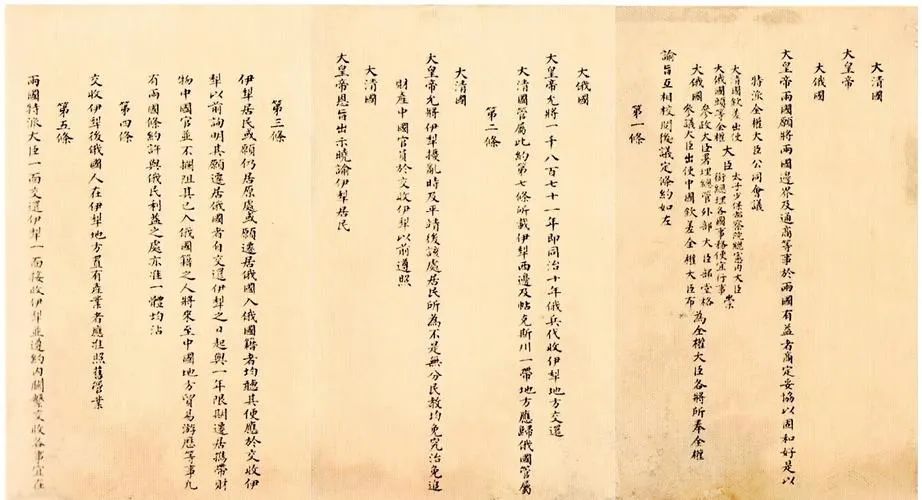 大清國
大皇帝
大俄國
大皇帝兩國願將兩國邊界及通商等事於兩國有益者商定妥協以固和好是以
特派全權大臣公同會議
大清國欽差出使
大俄國頭等全權
大臣
太子少保都察院總憲內大臣
銜總理各國事務便宜行事
崇
大俄國
參政大臣署理總管外部大臣部堂格
參議大臣出使中國欽差全權大臣布
為全權大臣各將所奉全權
諭旨互相校閱後議定條約如左
第一條
大俄國
大皇帝允將一千八百七十一年即同治十年俄兵代收伊犁地方交還
大清國管屬此約第七條所載伊犁西邊及帖克斯川一帶地方應歸俄國管屬
第二條
大清國
大皇帝允將伊犁擾亂時及平靖後該處居民所為不是無分民教均免究治免追
財產中國官員於交收伊犁以前遵照
大清國
大皇帝恩旨出示曉諭伊犁居民
第三條
伊犁居民或願仍居原處或願遷居俄國入俄國籍者均聽其便應於交收伊
犁以前詢明其願遷居俄國者自交還伊犁之日起與一年限期遷居攜帶財
物中國官並不攔阻其已入俄國籍之人將來至中國地方貿易游歷等事凡
有兩國條約許與俄民利益之處亦准一體均沾
第四條
交收伊犁後俄國人在伊犁地方置有產業者應准照舊管業
第五條
兩國特派大臣一面交還伊犁一面接收伊犁並遵約內關繫交收各事宜在